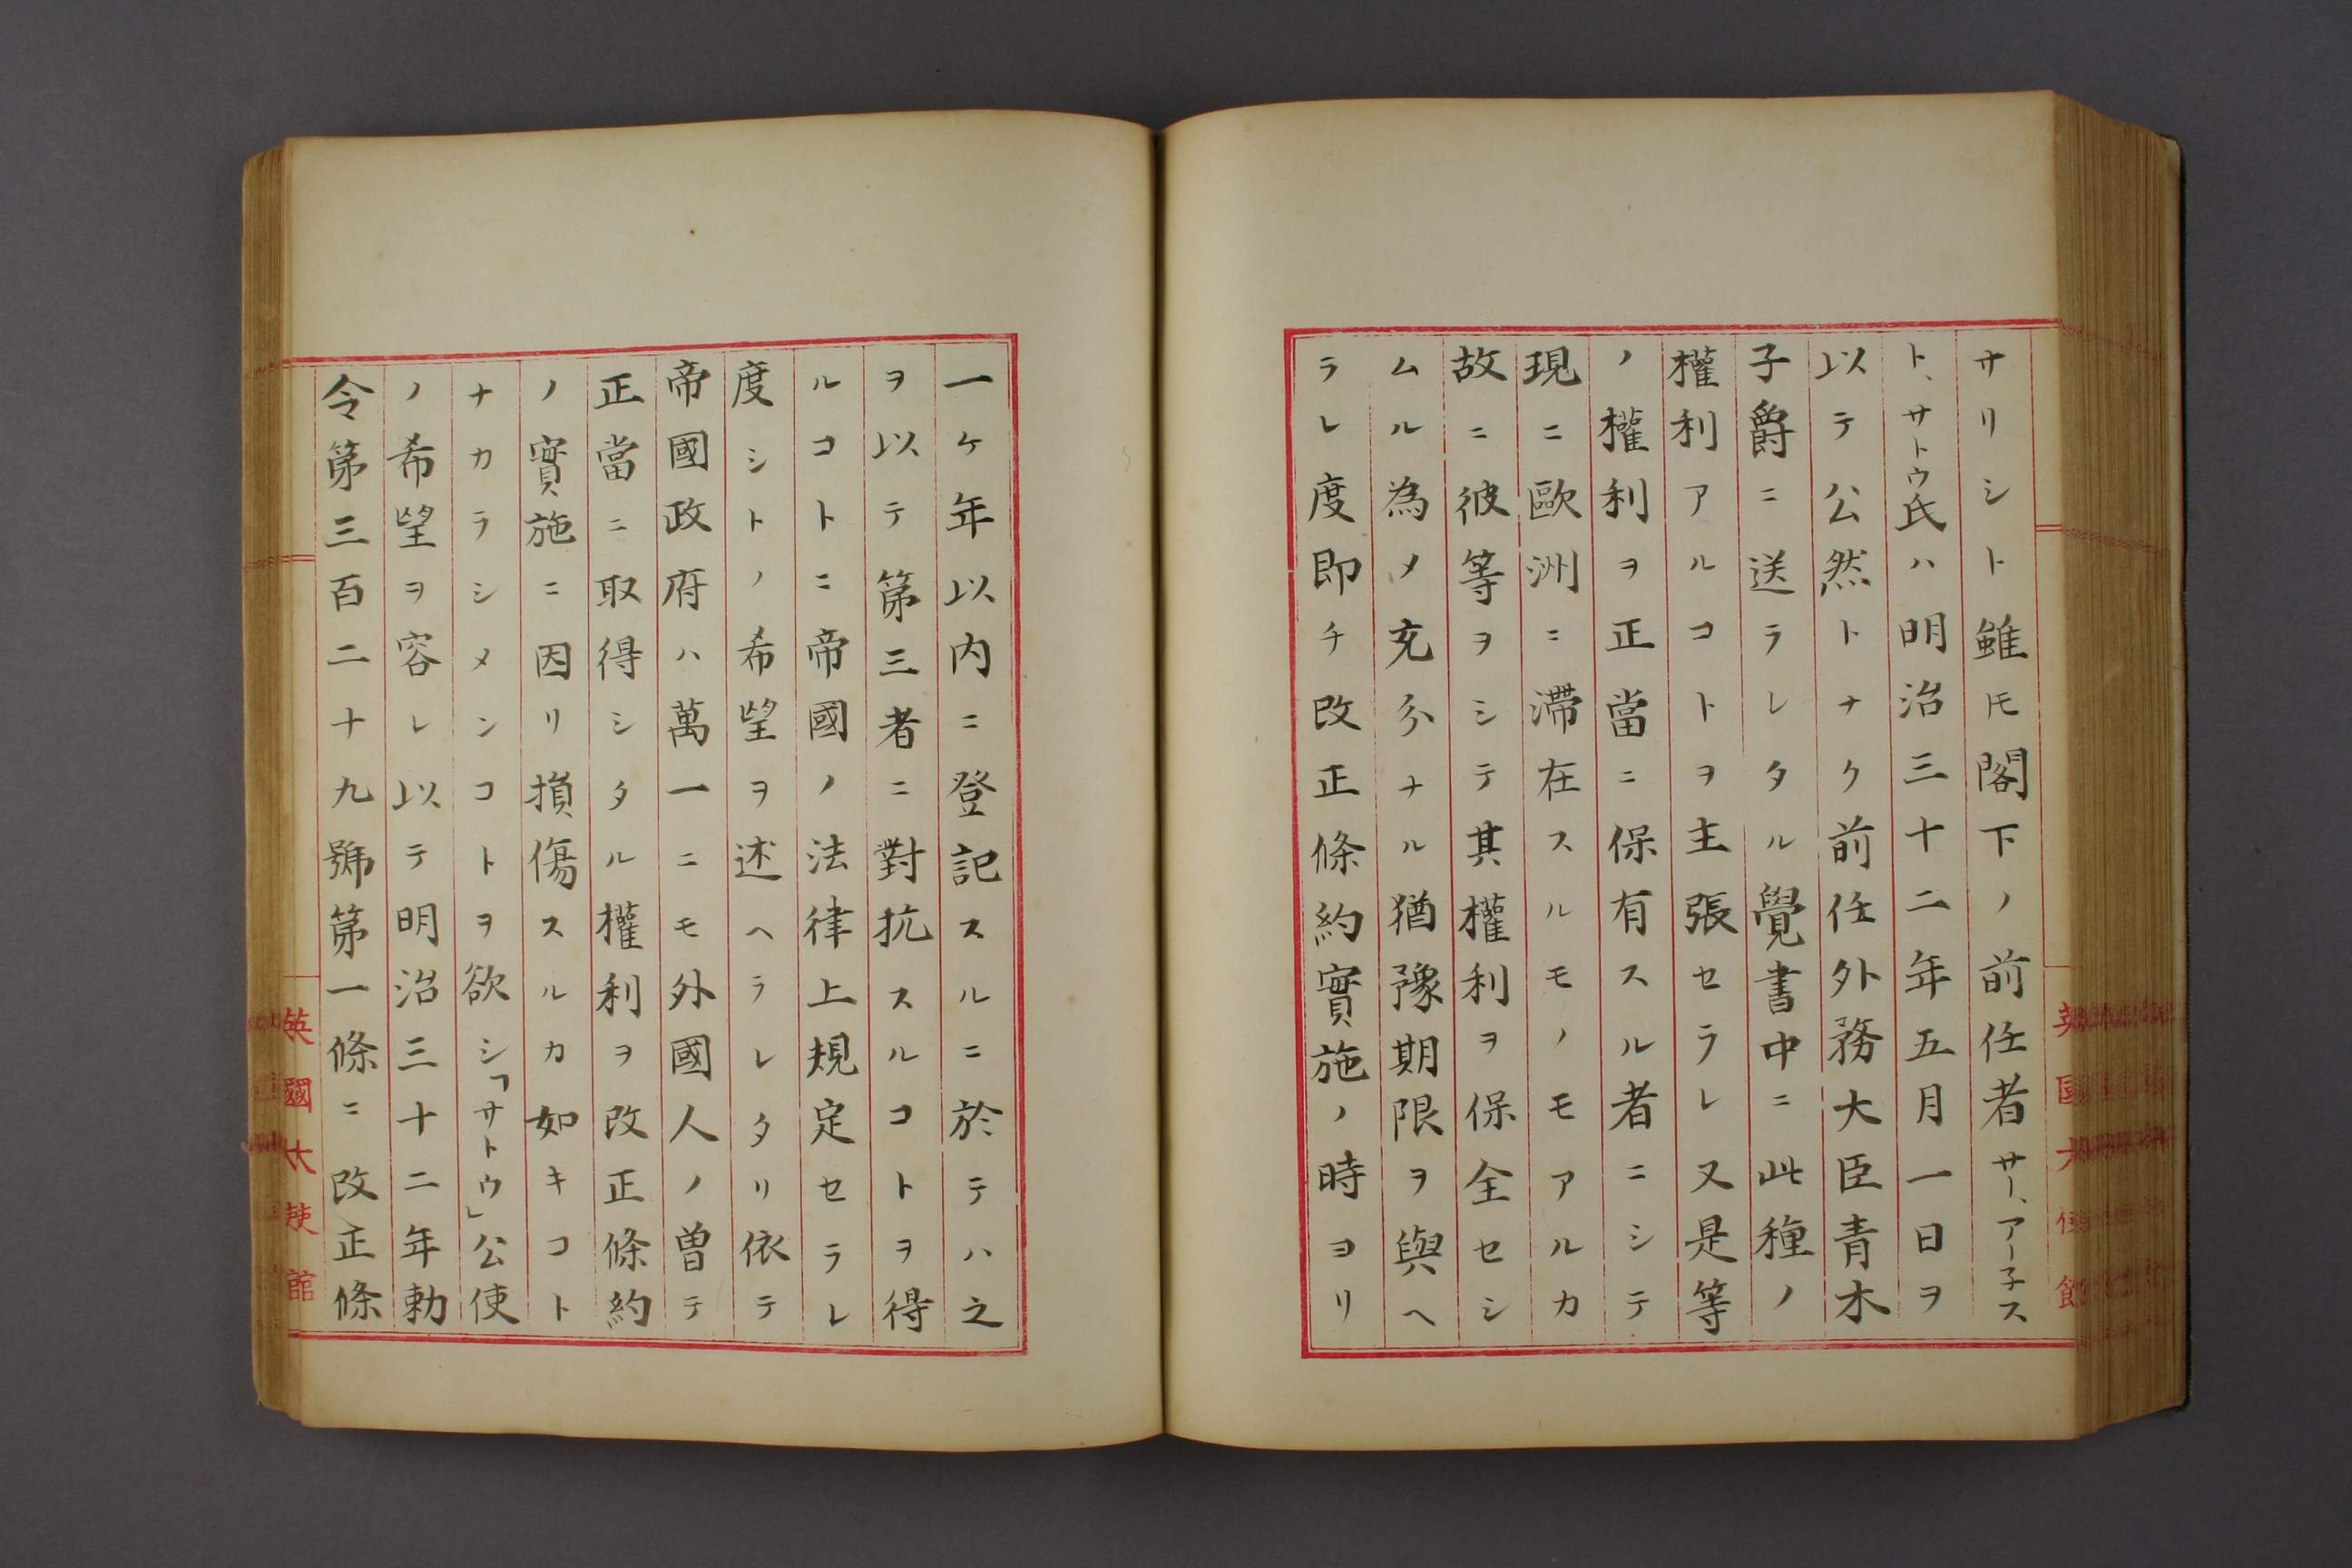 サリシト雖モ閣下ノ前任者サー、アーネス
ト、サトウ氏ハ明治三十二年五月一日ヲ
以テ公然トナク前任外務大臣青木
子爵ニ送ラレタル覺書中ニ此種ノ
權利アルコトヲ主張セラレ又是等
ノ權利ヲ正當ニ保有スル者ニシテ
現ニ歐洲ニ滯在スルモノモアルカ
故ニ彼等ヲシテ其權利ヲ保全セシ
ムル為メ充分ナル猶豫期限ヲ與ヘ
ラレ度即チ改正條約實施ノ時ヨリ
英國大使館
一ケ年以内ニ登記スルニ於テハ之
ヲ以テ第三者ニ對抗スルコトヲ得
ルコトニ帝國ノ法律上規定セラレ
度シトノ希望ヲ述ヘラレタリ依テ
帝國政府ハ萬一ニモ外國人ノ曽テ
正當ニ取得シタル權利ヲ改正條約
ノ實施ニ因リ損傷スルカ如キコト
ナカラシメンコトヲ欲シ「サトウ」公使
ノ希望ヲ容レ以テ明治三十二年勅
令第三百二十九號第一條ニ改正條
英國大使館